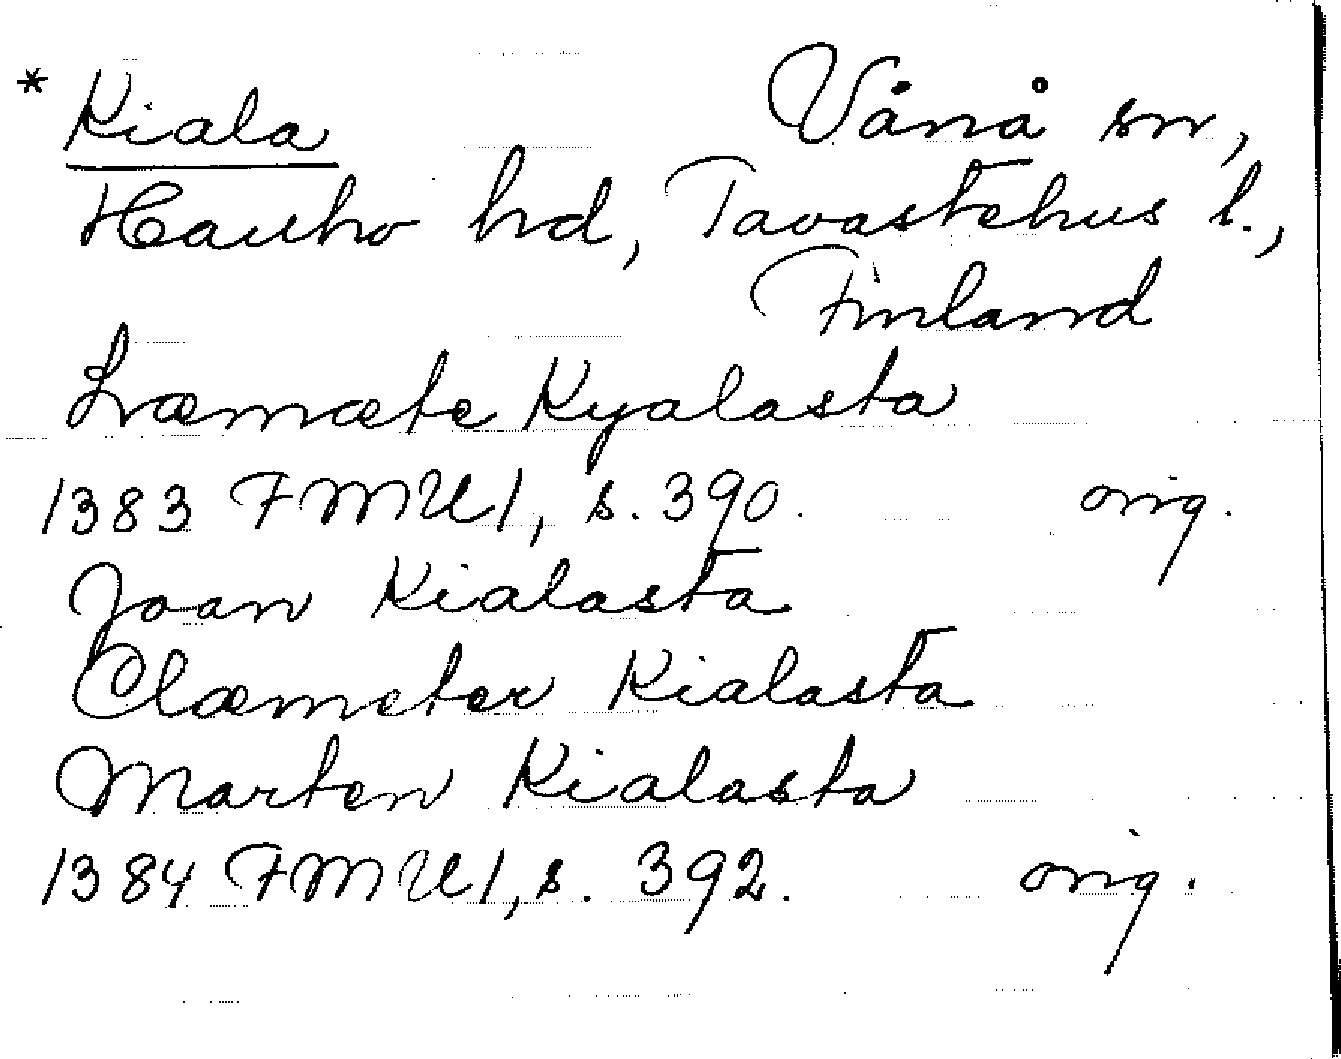 * Kiala Vånå sn,
Hauho hd, Tavastehus l.,
Finland
Læmæte Kyalasta
1383 FMU 1, s. 390. orig.
Joan Kialasta
Clæmeter Kialasta
Marten Kialasta
1384 FMU 1, s. 392. orig.